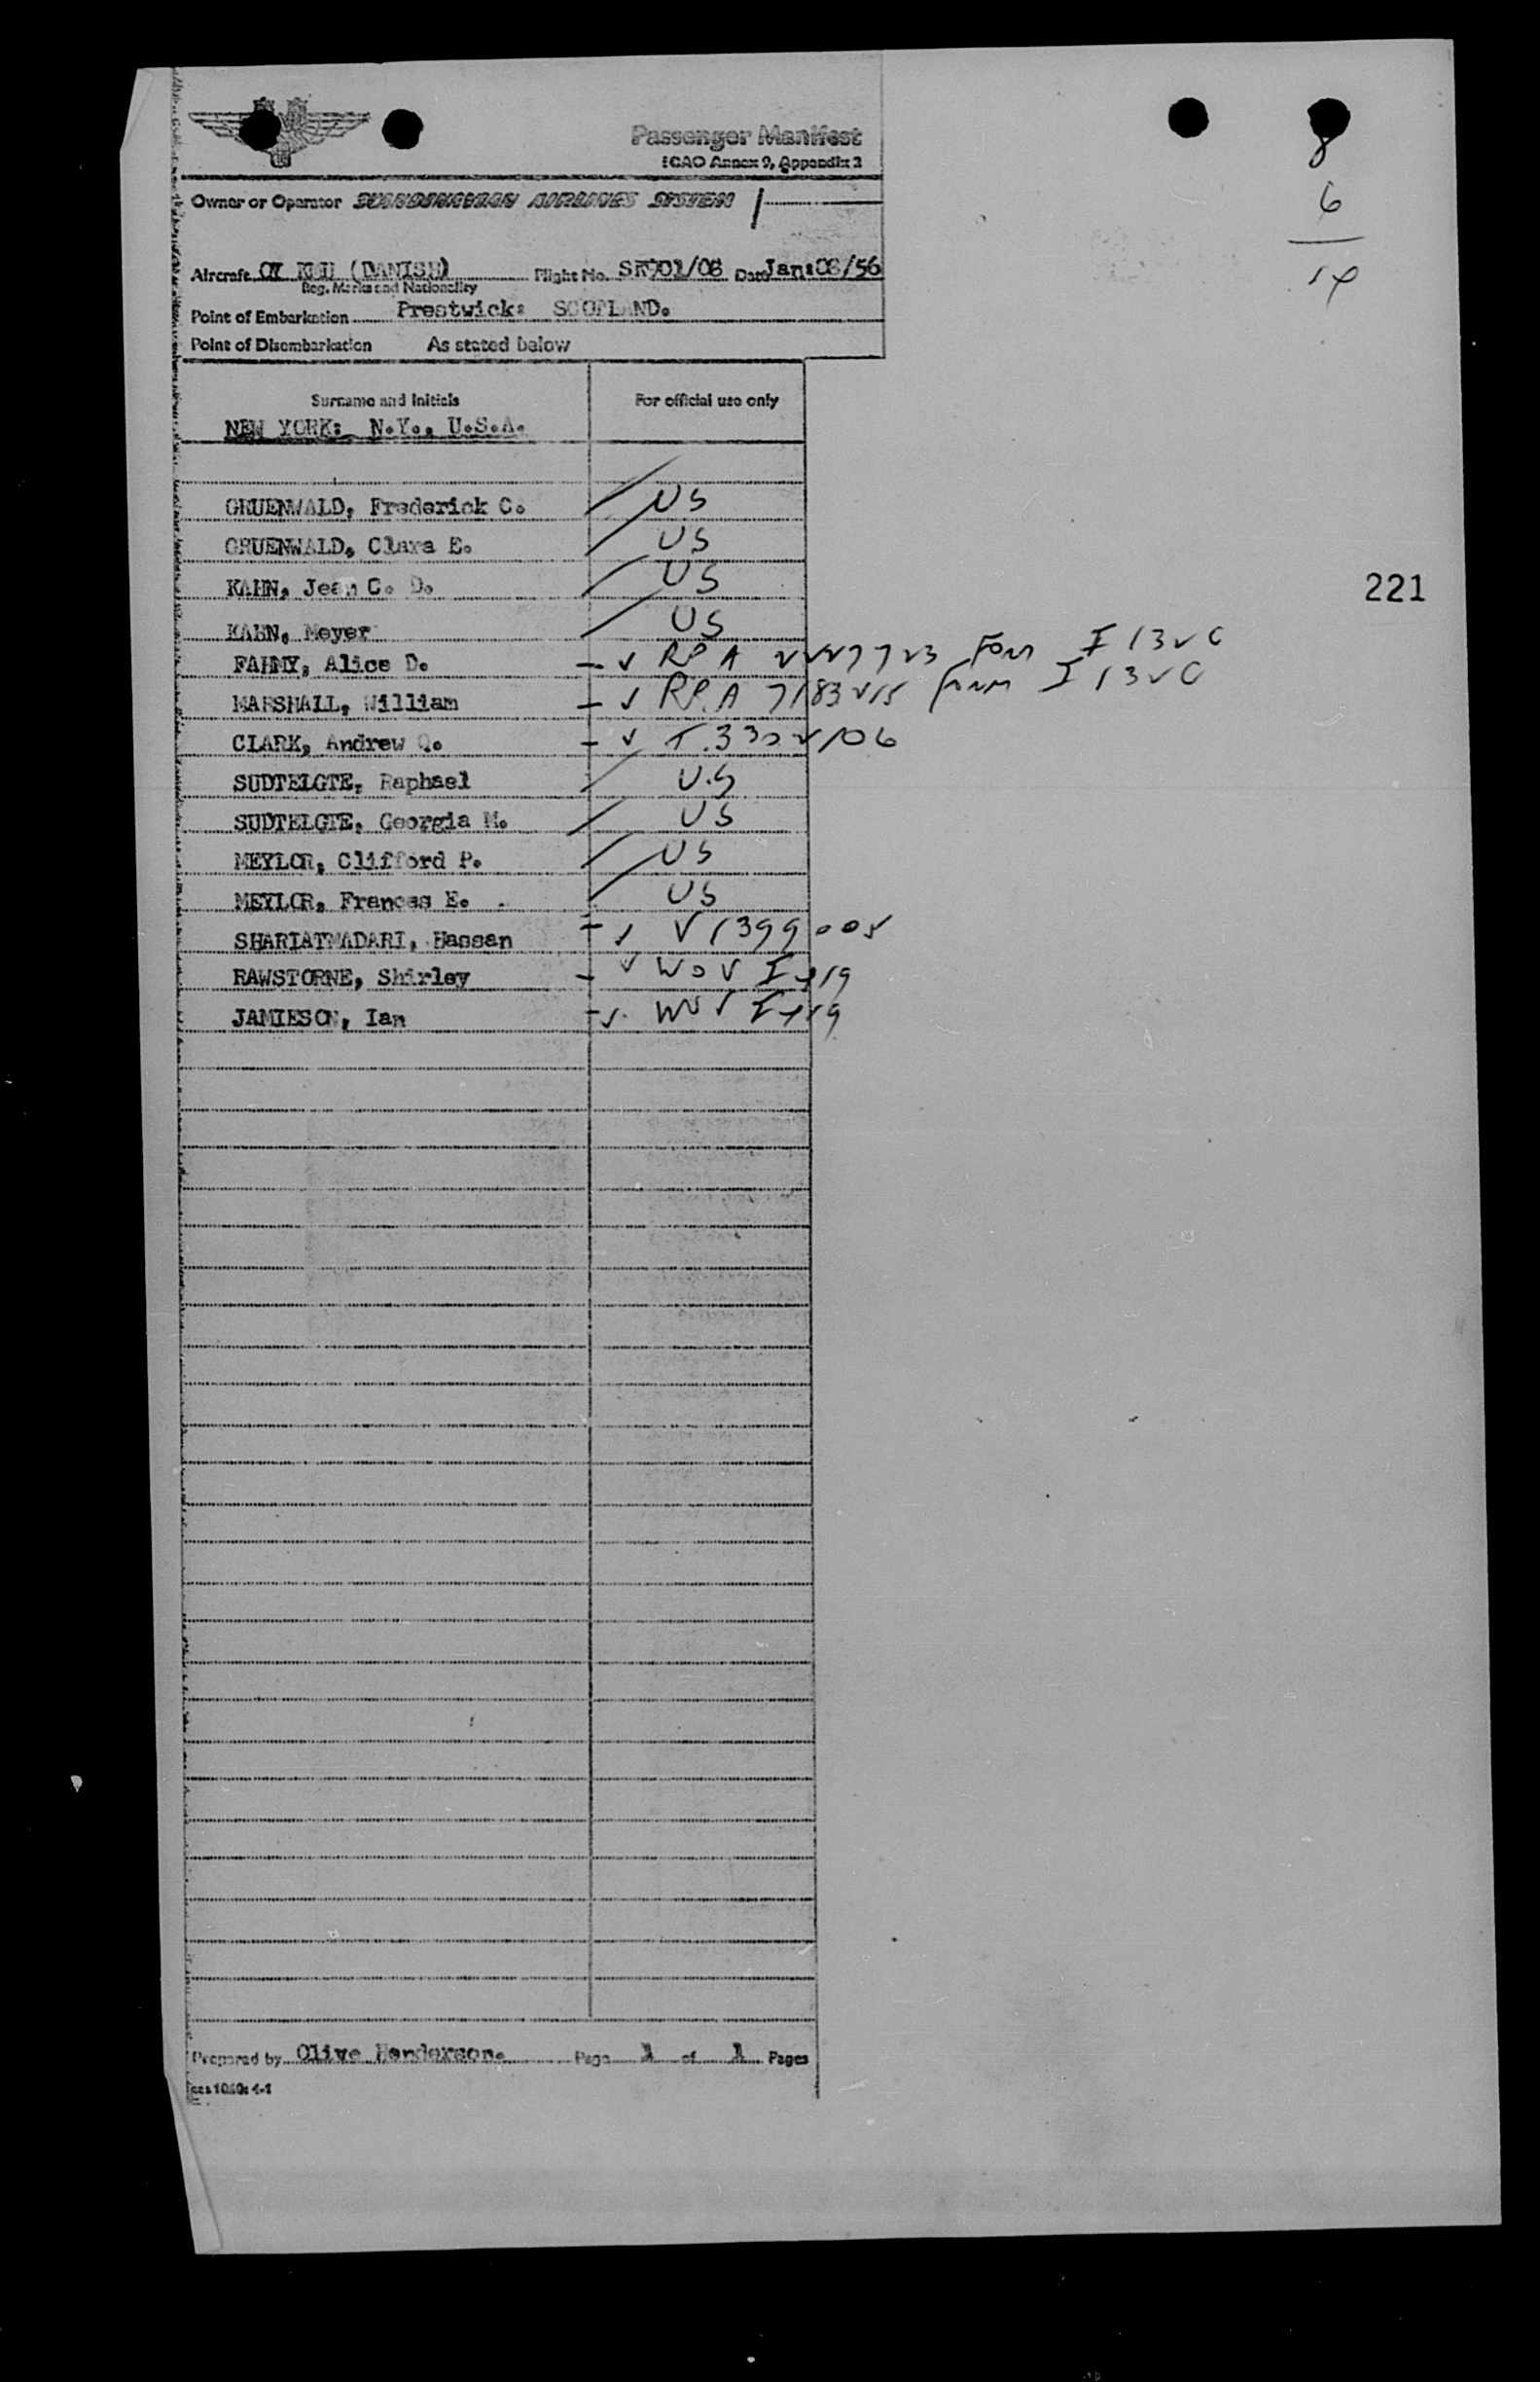 Passenger Manifest
ICAO Annex 9, Appendix 2
8
6
14
Owner or Operator SCANDINAVIAN AIRLINES SYSTEM 1
Aircraft OY (DANISH) Flight No. SK901/08 Date Jan:08/56
Reg. Marks and Nationality
Point of Embarkation Prestwick: SCOTLAND.
Point of Disembarkation As stated below
Surname and Initials For official use only
NEW YORK: N.Y., U.S.A.
GRUENWALD, Frederick C. US
GRUENWALD, Clara E. US
KAHN, Jean C. D. US
221
KAHN, Meyer US
FAHMY, Alice D. RP A
MARSHALL, William RP.A
CLARK, Andrew
SUDTELGTE, Raphael U.S
SUDTELGTE, Georgia M. US
MEYLOR, Clifford P. US
MEYLOR, Frances E. US
SHARIATMADARI, Hassan V1399005
RAWSTORNE, Shirley
JAMIESON, Ian
Prepared by Olive Henderson. Page 1 of 1 Pages